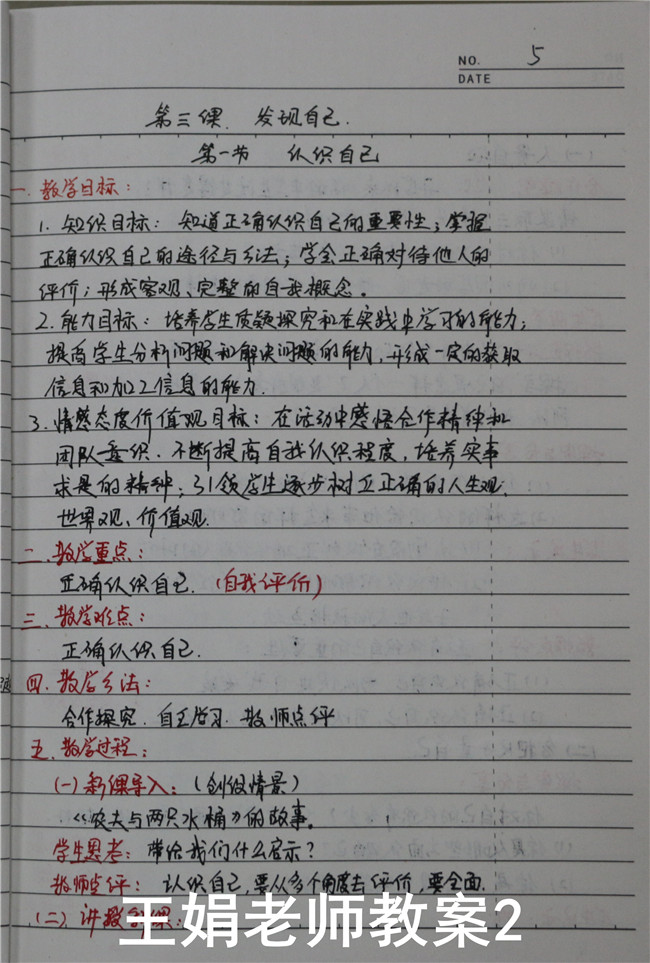 NO. 5
DATE
第三课. 发现自己.
第一节 认识自己
一.教学目标:
1. 知识目标: 知道正确认识自己的重要性;掌握
正确认识自己的途径与方法;学会正确对待他人的
评价;形成客观、完整的自我概念。
2. 能力目标: 培养学生质疑探究和在实践中学习的能力;
提高学生分析问题和解决问题的能力,形成一定的获取
信息和加工信息的能力.
3. 情感态度价值观目标: 在活动中感悟合作精神和
团队意识. 不断提高自我认识程度,培养实事
求是的精神;引领学生逐步树立正确的人生观、
世界观、价值观.
二.教学重点:
正确认识自己. (自我评价)
三.教学难点:
正确认识自己.
四.教学方法:
合作探究. 自主学习. 教师点评
五.教学过程:
(一)新课导入: (创设情景)
《农夫与两只水桶》的故事。
学生思考: 带给我们什么启示?
教师点评: 认识自己,要从多个角度去评价,要全面.
(二)讲授新课:
王娟老师教案2